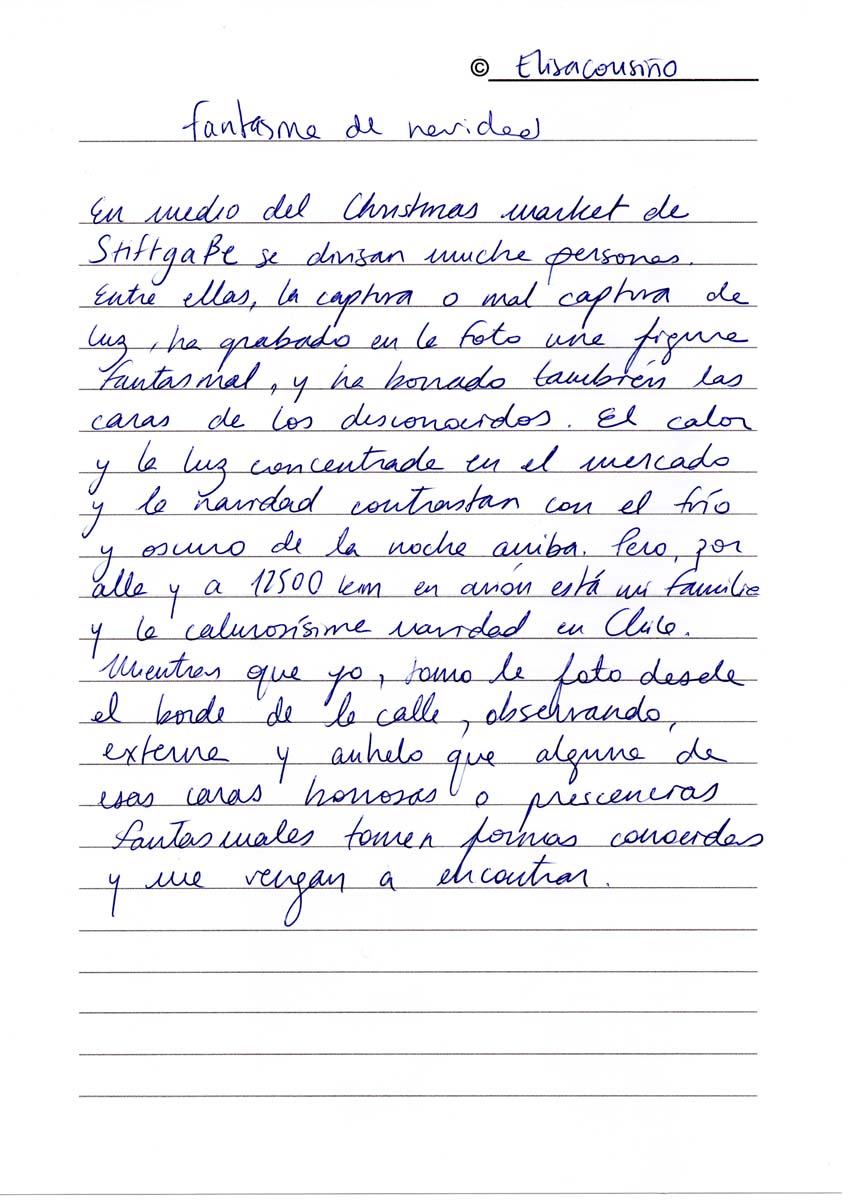 © Elisacousiño
fantasma de navidad
En medio del Christmas market de
Stiftgaße se divisan mucha personas.
Entre ellas, la captura o mal captura de
luz, ha grabado en la foto una figura
fantasmal, y ha borrado también las
caras de los desconocidos. El calor
y la luz concentrada en el mercado
y la navidad contrastan con el frío
y oscuro de la noche arriba. Pero, por
alla y a 12500 km en avión está mi familia
y la calurosísima navidad en Chile.
Mientras que yo, tomo la foto desde
el borde de la calle, observando,
externa y anhelo que alguna de
esas caras borrosas o
fantasmales tomen formas conocidas
y me vengan a encontrar.